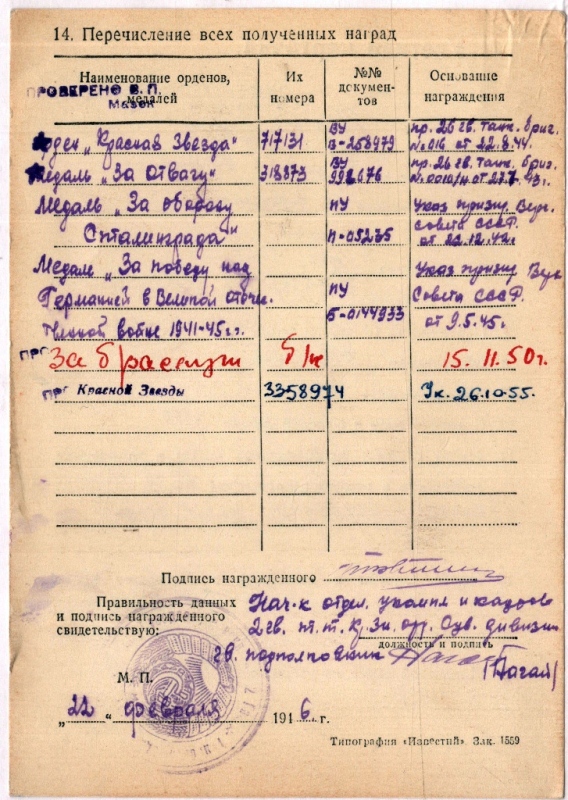 14. Перечисление всех полученных наград
Наименование орденов, медалей
Их номера
№№ документов
Основание награждения
ПРОВЕРЕНО В. П.
Мазок
Орден „Красная Звезда" 717131 ВУ В-258979 пр. 26 гв. танк. бриг. №016 от 22.8.44г.
Медаль „За Отвагу" 318873 ВУ 992676 пр. 26 гв. танк. бриг.
Медаль „За оборону ПУ Указ през. Верх.
Сталинграда" П-05235 Совета СССР от 22.12.42г.
Медаль „За победу над Указ през. Верх.
Германией в Великой отече- ПУ Совета СССР
ственной войне 1941-45г.г. Б-0144933 от 9.5.45г.
За б/заслуги б/н 15.11.50г.
Красной Звезды 3358974 Ук. 26.10-55.
Подпись награжденного
Правильность данных
и подпись награжденного
свидетельствую:
Нач-к отдел. укомпл и кадров
2 гв. т. т. Кр. Зн. орд. Сув. дивизии
должность и подпись
гв. подполковник
(Нагай)
М. П.
„22" февраля 1946 г.
Типография «Известий» Зак. 1559